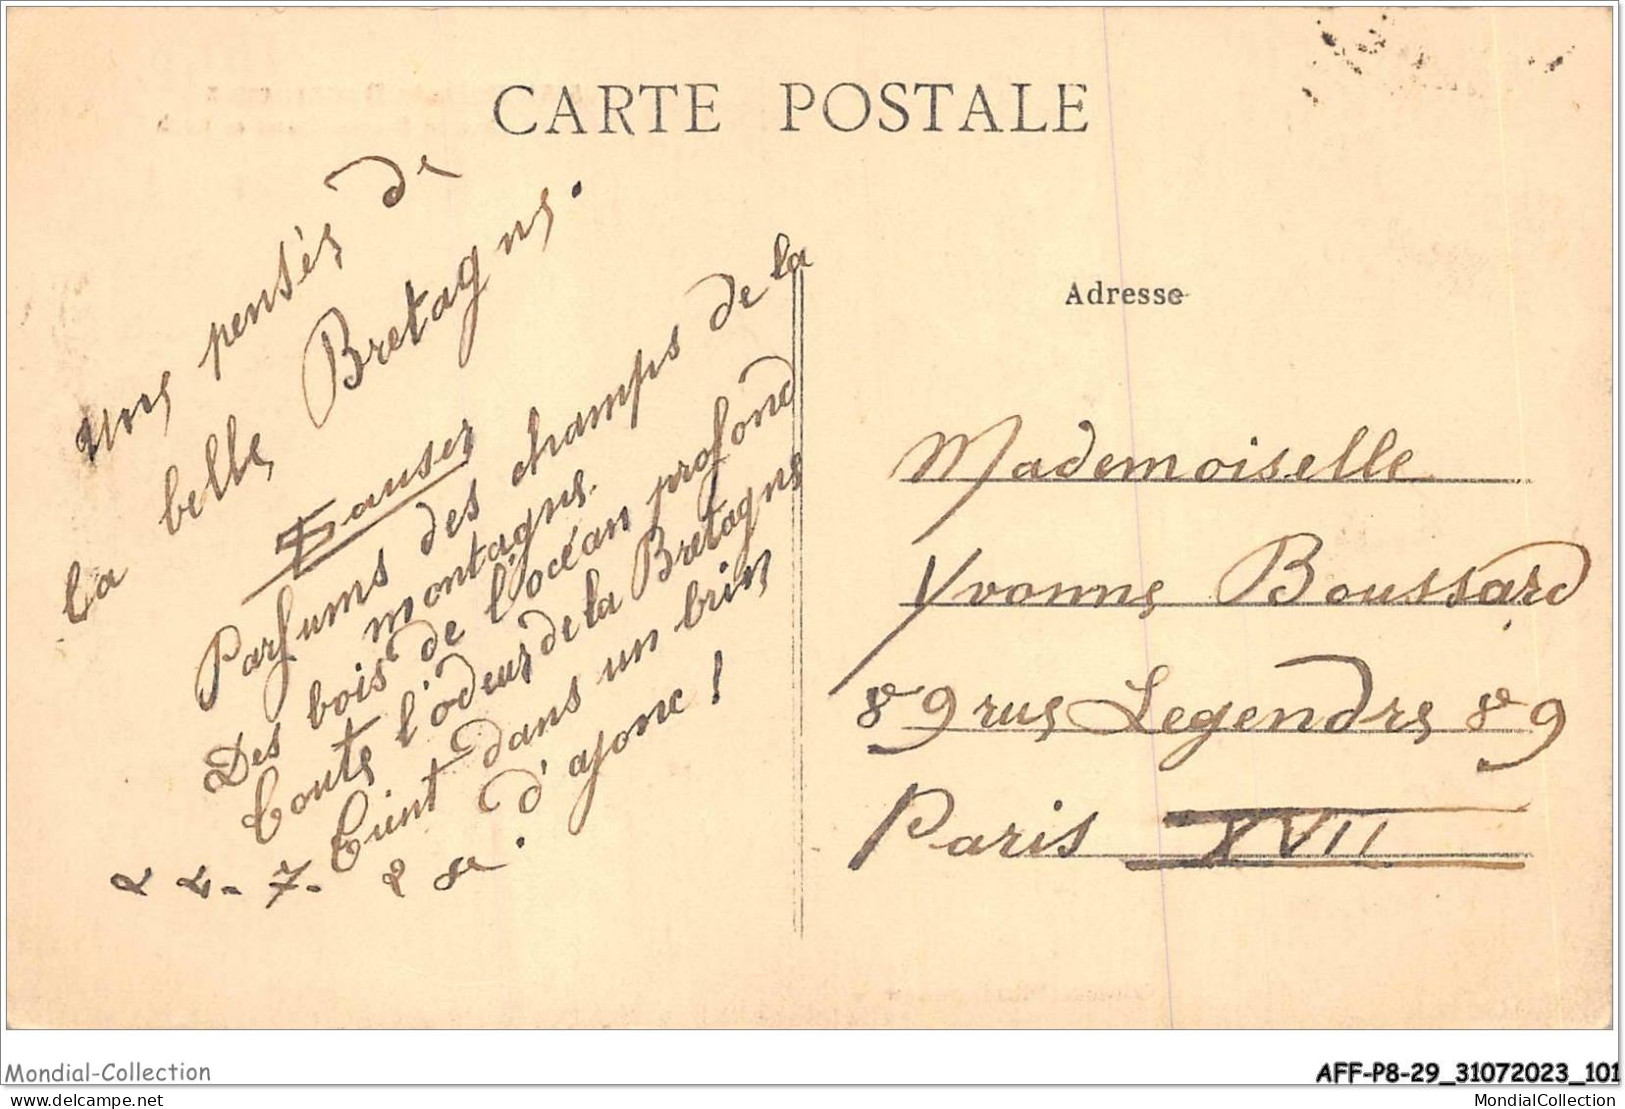 CARTE POSTALE
une pensés de
la belle Bretagne.
Parfums des champs de la
montagne.
Des bois de l'océan profond
Toute l'odeur de la Bretagne
Tient dans un brin
d'ajonc !
Adresse
Mademoiselle
Yvonne Boussard
89 rue Legendre 89
Paris XVII
Mondial-Collection
AFF-P8-29_31072023_101
delcampe.net
MondialCollection